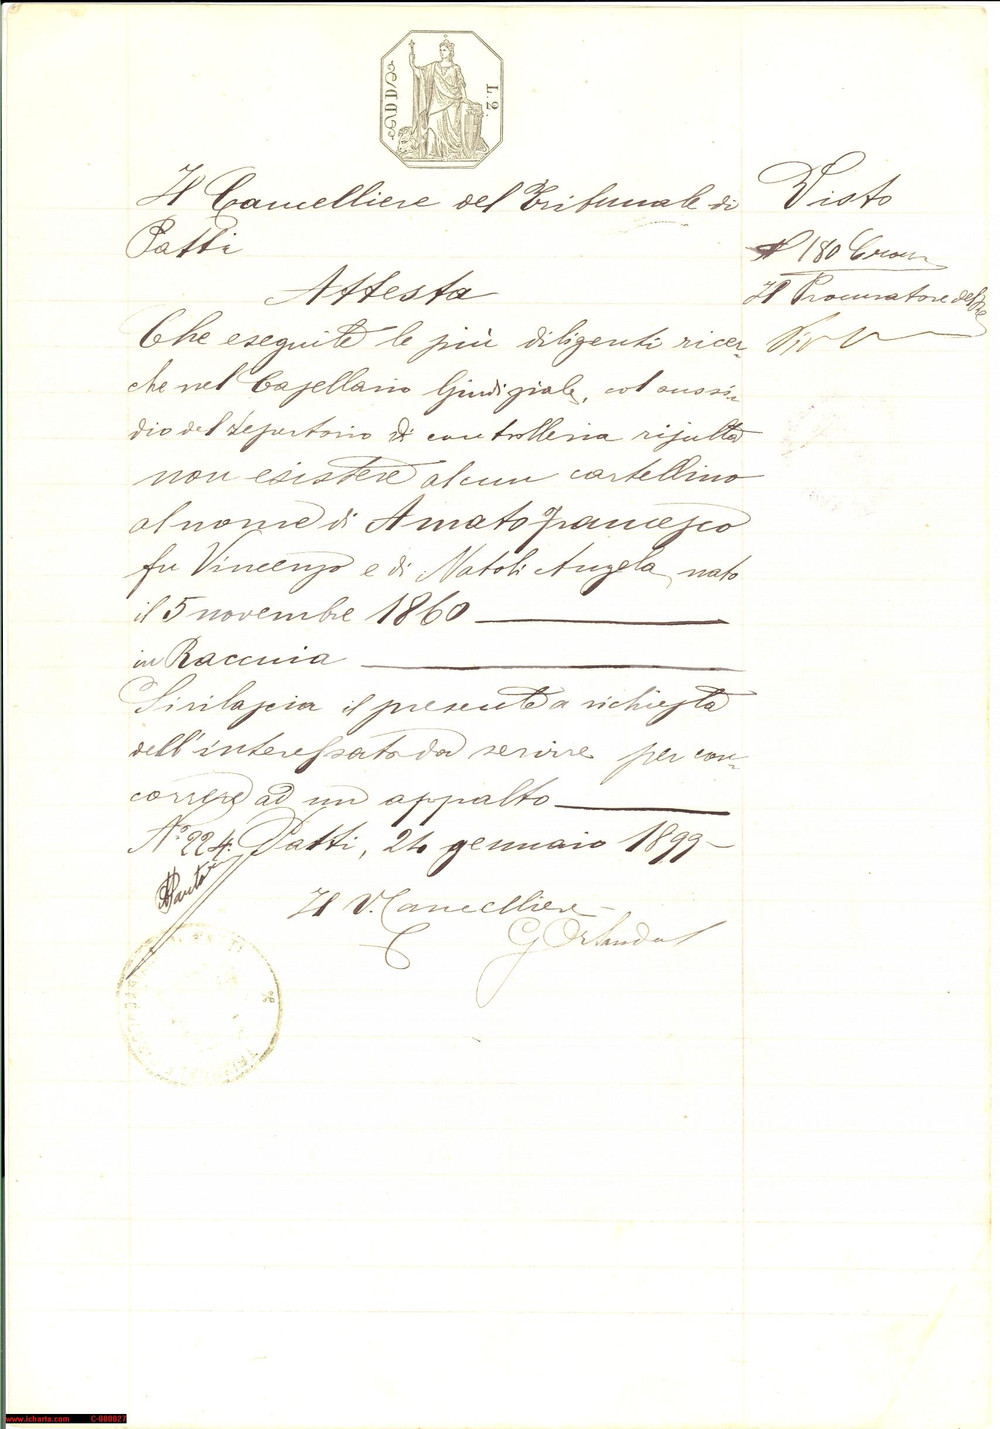 L. 2.
Il Cancelliere del Tribunale di
Patti
Attesta
Che eseguite le più diligenti ricer-
che nel Casellario Giudiziale, col aussi-
dio del repertorio di controlleria risulta
non esistere alcun cartellino
al nome di Amato Francesco
fu Vincenzo e di Natoli Angela, nato
il 5 novembre 1860
in Raccuia
Si rilascia il presente a richiesta
dell'interessato da servire per con-
correre ad un appalto
N° 224. Patti, 24 gennaio 1899
Il V. Cancelliere
G Orlando
Visto
N 180 Cron
Il Procuratore del Re
www.icharta.com C-000027